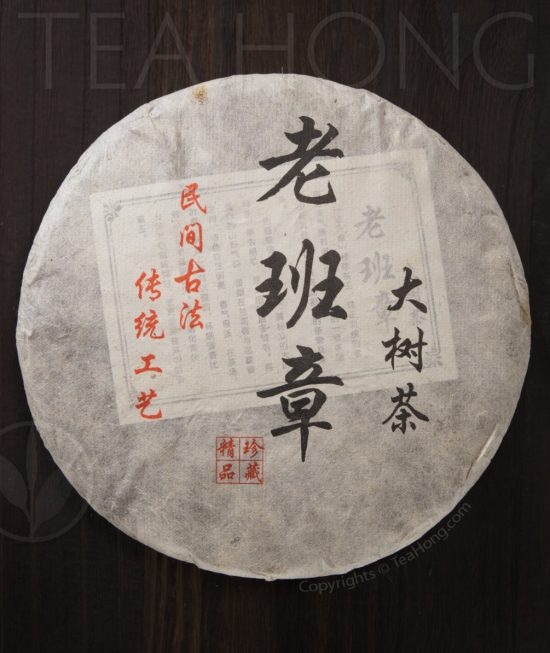 TEA HONG
大树茶
老班章
民间古法
传统工艺
珍藏
精品
老班章
Copyrights © TeaHong.com